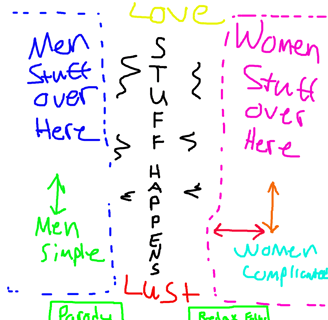 Love
Men
Stuff
over
Here
STUFF HAPPENS
Women
Stuff
over
Here
Men
Simple
Women
Lust
Parody